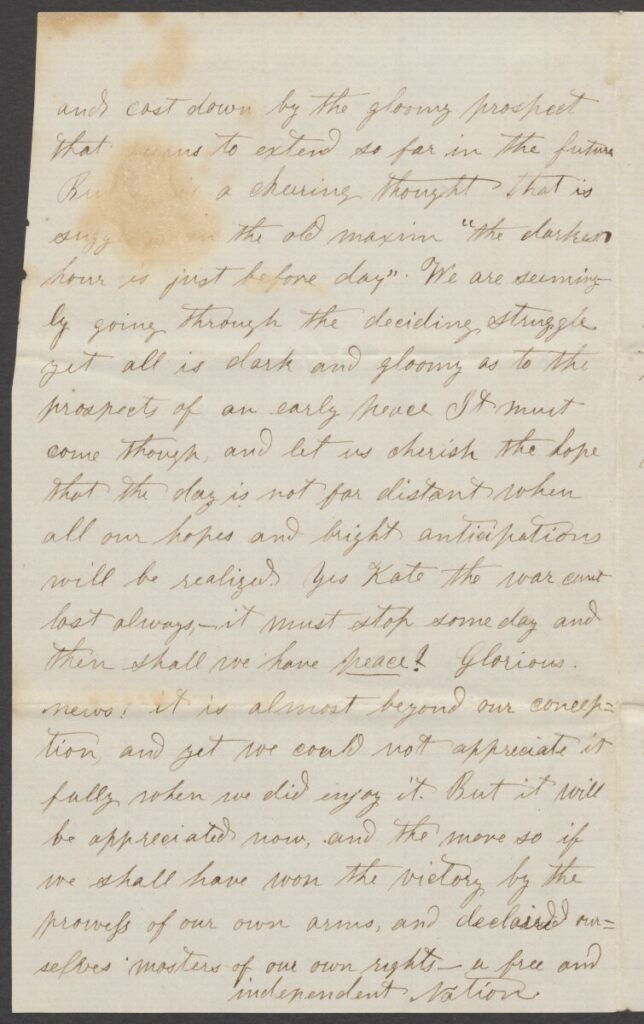 and cast down by the gloomy prospect
that to extend so far in the future
But a cheering thought that is
in the old maxim "the darkest
hour is just before day". We are seeming
ly going through the deciding struggle
yet all is dark and gloomy as to the
prospects of an early peace It must
come though, and let us cherish the hope
that the day is not far distant when
all our hopes and bright anticipations
will be realized. Yes Kate the war cant
last always,—it must stop some day and
then shall we have peace! Glorious.
news! it is almost beyond our concep=
tion, and yet we could not appreciate it
fully when we did enjoy it. But it will
be appreciated now, and the more so if
we shall have won the victory by the
prowess of our own arms, and declaired our=
selves masters of our own rights— a free and
independent Nation